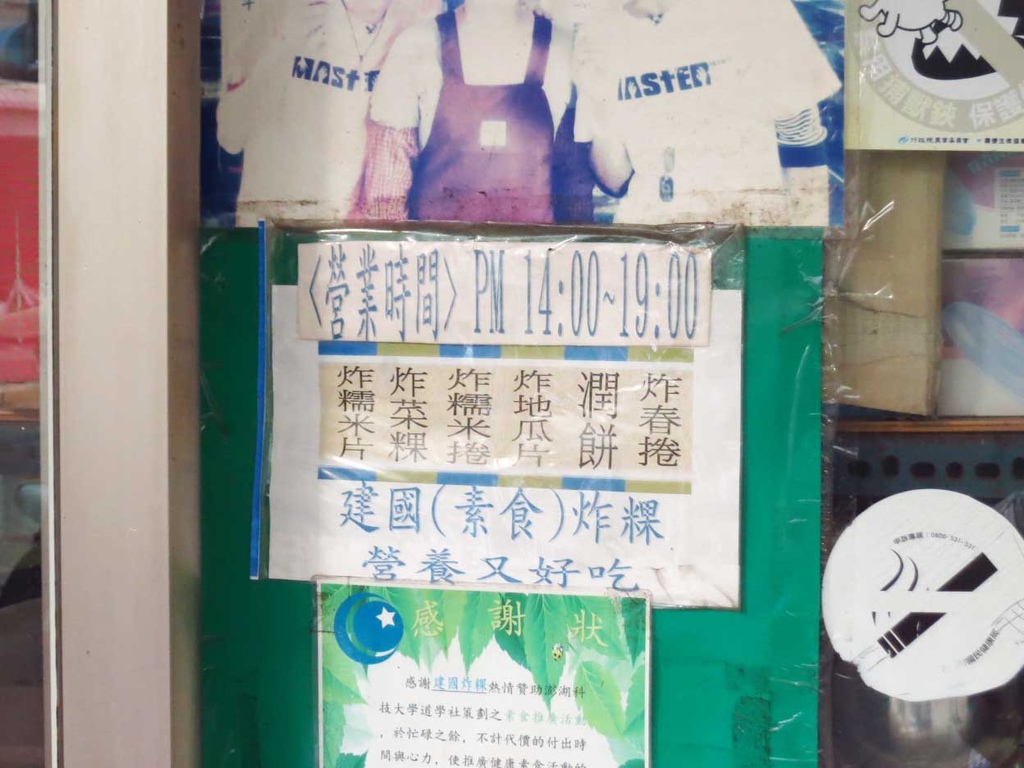 MASTE
MASTER
保護
行政院農業委員會
<營業時間> PM 14:00~19:00
炸春捲
潤餅
炸地瓜片
炸糯米捲
炸菜粿
炸糯米片
建國(素食)炸粿
營養又好吃
感謝狀
感謝建國炸粿熱情贊助澎湖科
技大學道學社策劃之素食推廣活動
，於忙碌之餘，不計代價的付出時
間與心力，使推廣健康素食活動的
申訴專線：0800-531-531